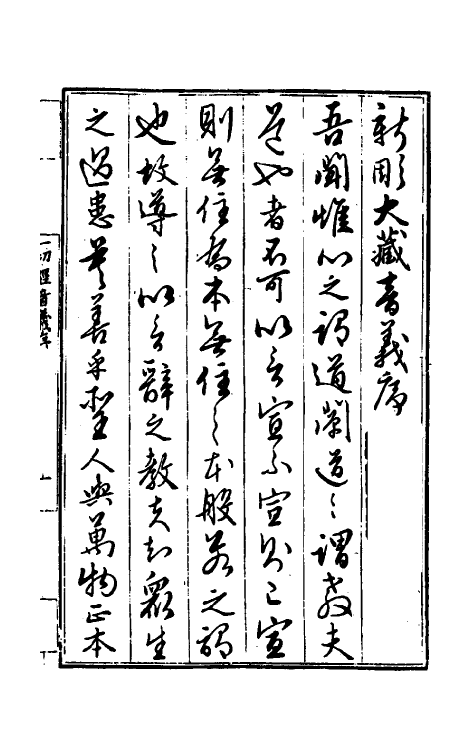 新彫大藏音義序
吾聞惟心之謂道闡道之謂教夫
道也者不可以言宣不宣則已宣
則無住為本無住之本般若之謂
也故導之以言辭之教夫知眾生
之過患莫善乎聖人與萬物正本
一切經音義序